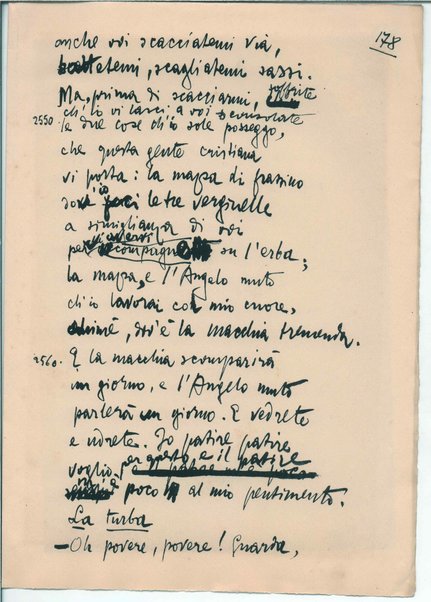 178
anche voi scacciatemi via,
battetemi, scagliatemi sassi.
Ma, prima di scacciarmi, soffrite
ch'io vi lasci, a voi sconsolate
2550 le due cose ch'io sole posseggo,
che questa gente cristiana
vi porta: la mazza di frassino
dov'io feci le tre verginelle
a simiglianza di voi
per avervi compagne su l'erba;
la mazza, e l'Angelo muto
ch'io lavorai col mio cuore,
ahimè, dov'è la macchia tremenda.
2560. E la macchia scomparirà
un giorno, e l'Angelo muto
parlerà un giorno. E vedrete
e udrete. Io patire patire
voglio per questo, e il patire
m'è poco al mio pentimento.
La turba
— Oh povere, povere! Guarda,